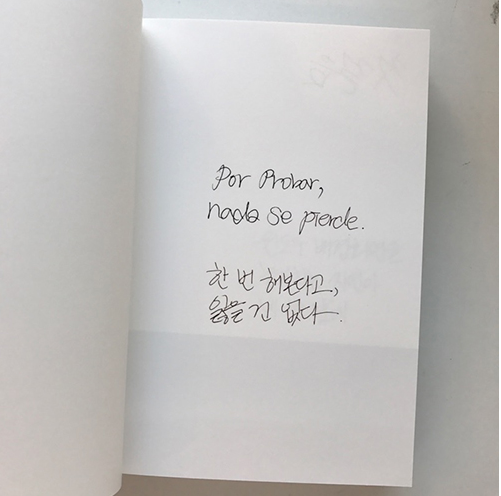 Por Probar,
nada se pierde.
한 번 해본다고,
잃을 건 없다.